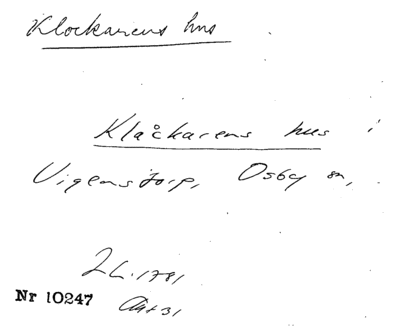 Klockarens hus
Klåckarens hus i
Vigenstorp, Osby sn,
2 L. 1781
Nr 10247
Akt 31